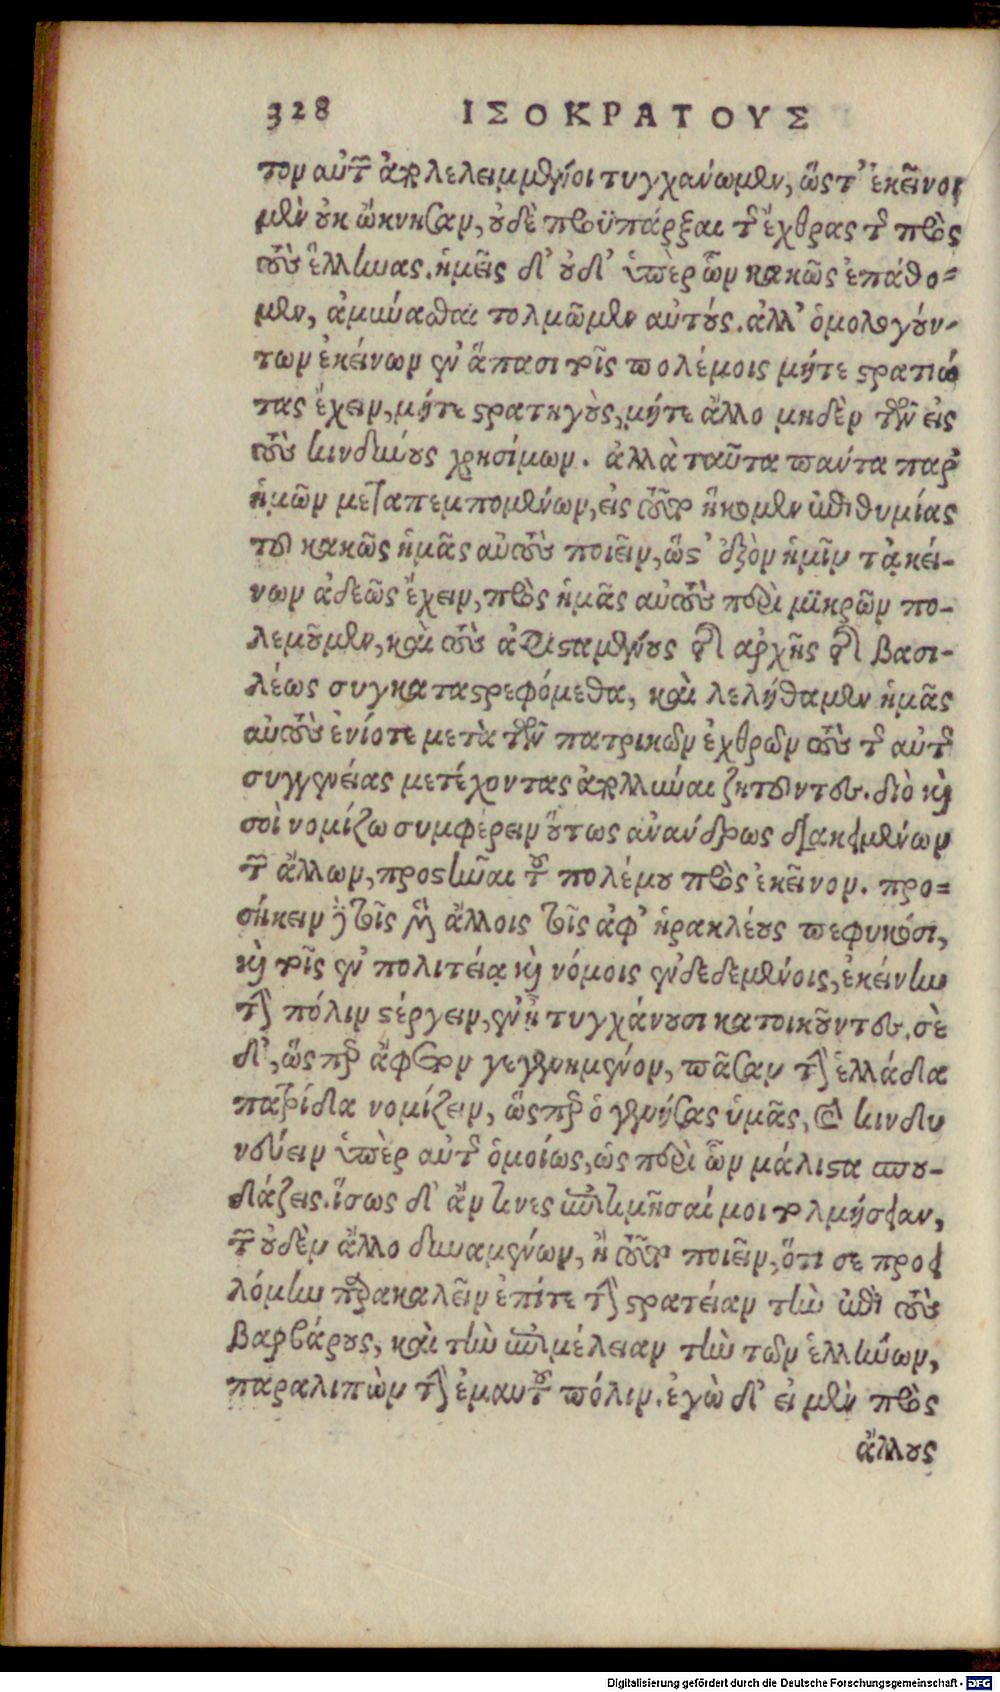 328 ΙΣΟΚΡΑΤΟΥΣ
τον αὐτῶν ἀπολελειμμένοι τυγχάνωμεν, ὥστ' ἐκεῖνοι
μὲν οὐκ ὤκνησαν, οὐδὲ προϋπάρξαι τῆς ἔχθρας τῆς πρὸς
τοὺς ἕλληνας. ἡμεῖς δ' οὐδ' ὑπὲρ ὧν κακῶς ἐπάθο-
μεν, ἀμύναθαι τολμῶμεν αὐτούς. ἀλλ' ὁμολογούν-
των ἐκείνων ἐν ἅπασι τοῖς πολέμοις μήτε στρατιώ
τας ἔχειν, μήτε στρατηγοὺς, μήτε ἄλλο μηδὲν τῶν εἰς
τοὺς κινδύνους χρησίμων. ἀλλὰ ταῦτα πάντα παρ'
ἡμῶν μεταπεμπομένων, εἰς τοῦτο ἥκομεν ἐπιθυμίας
τοῦ κακῶς ἡμᾶς αὐτοὺς ποιεῖν, ὥστ' ἐξὸν ἡμῖν τἀκεί-
νων ἀδεῶς ἔχειν, πρὸς ἡμᾶς αὐτοὺς περὶ μικρῶν πο-
λεμοῦμεν, καὶ τοὺς ἀφισταμένους τῆς ἀρχῆς τῆς βασι-
λέως συγκαταστρεφόμεθα, καὶ λελήθαμεν ἡμᾶς
αὐτοὺς ἐνίοτε μετὰ τῶν πατρικῶν ἐχθρῶν τοὺς τῆς αὐτῆς
συγγενείας μετέχοντας ἀπολλύναι ζητοῦντες. διὸ καὶ
σοὶ νομίζω συμφέρειν οὕτως ἀνάνδρως διακειμένων
τῶν ἄλλων, προστῆναι τοῦ πολέμου πρὸς ἐκεῖνον. προ-
σήκειν δὲ τοῖς μὲν ἄλλοις τοῖς ἀφ' ἡρακλέους πεφυκόσι,
καὶ τοῖς ἐν πολιτείᾳ καὶ νόμοις ἐνδεδεμένοις, ἐκείνην
τὴν πόλιν στέργειν, ἐν ᾗ τυγχάνουσι κατοικοῦντες. σὲ
δ', ὥσπερ ἄφετον γεγενημένον, πᾶσαν τὴν ἑλλάδα
πατρίδα νομίζειν, ὥσπερ ὁ γεννήσας ὑμᾶς, καὶ κινδυ
νεύειν ὑπὲρ αὐτῆς ὁμοίως, ὡς περὶ ὧν μάλιστα σπου-
δάζεις. ἴσως δ' ἄν τινες ἐπιτιμῆσαί μοι τολμήσειαν,
τῶν οὐδὲν ἄλλο δυναμένων, ἢ τοῦτο ποιεῖν, ὅτι σε προει
λόμην παρακαλεῖν ἐπίτε τὴν στρατείαν τὴν ἐπὶ τοὺς
βαρβάρους, καὶ τὴν ἐπιμέλειαν τὴν τῶν ἑλλήνων,
παραλιπὼν τὴν ἐμαυτοῦ πόλιν. ἐγὼ δ' εἰ μὲν πρὸς
ἄλλους
Digitalisierung gefördert durch die Deutsche Forschungsgemeinschaft - DFG